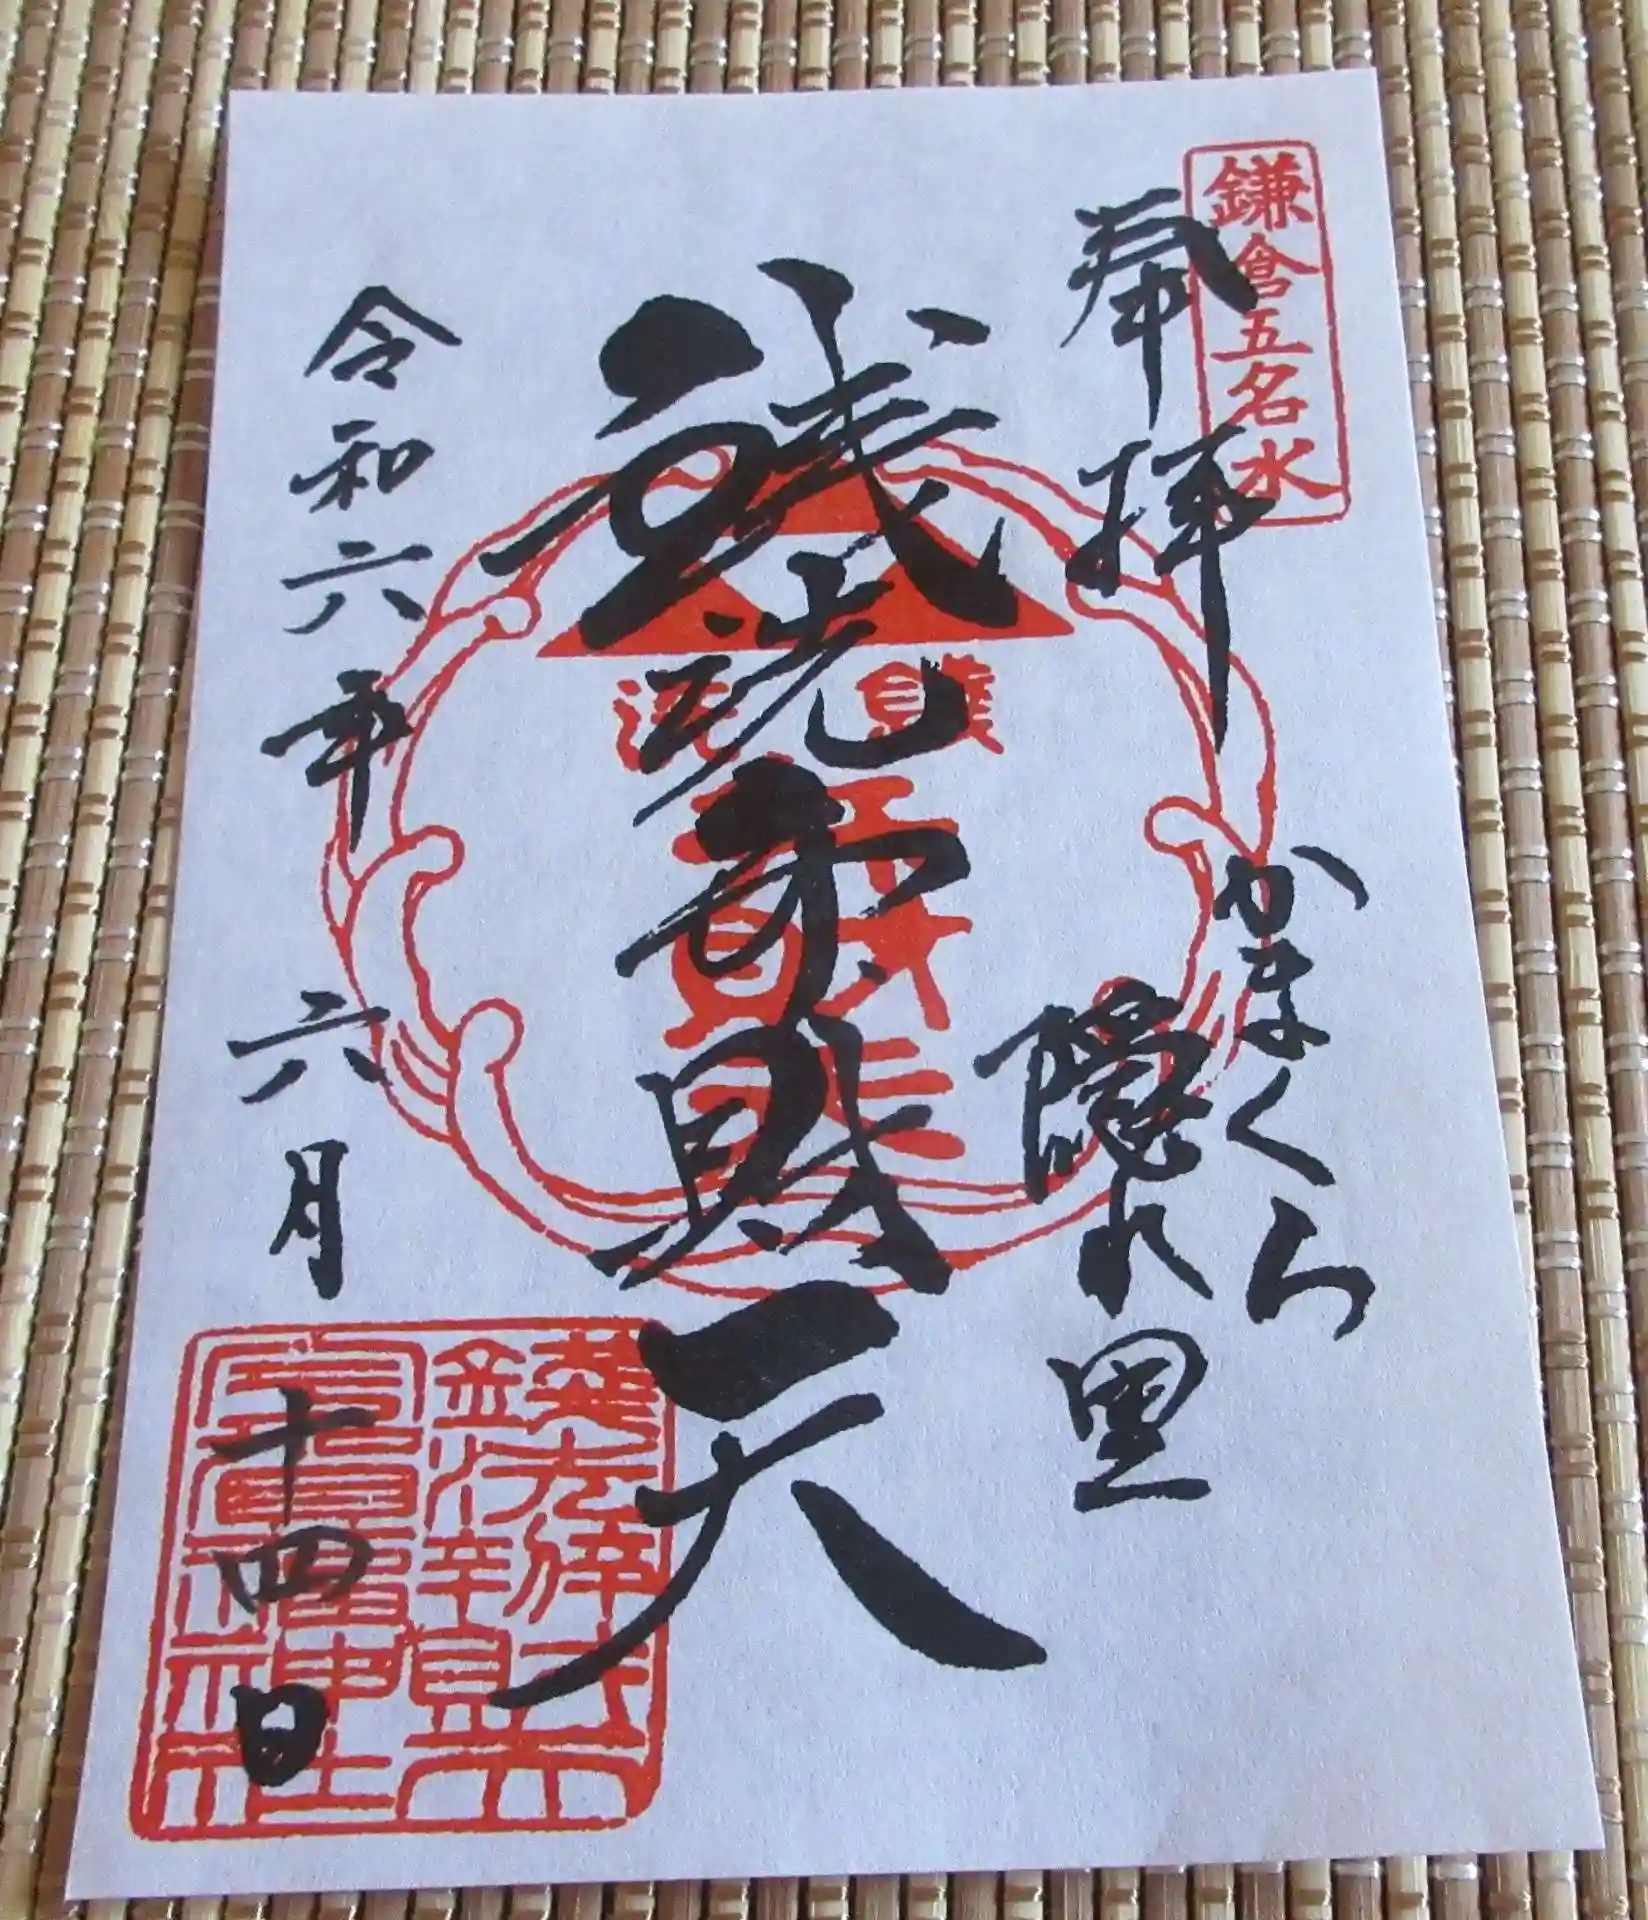 鎌倉五名水
奉拝
かまくら
隠れ里
銭洗弁財天
令和六年六月十四日
銭洗弁財天
宇賀福神社